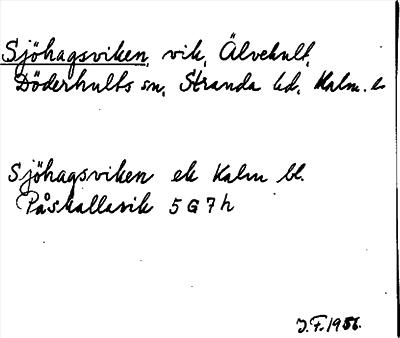 Sjöhagsviken, vik, Älvehult,
Döderhults sn, Stranda hd, Kalm. l.
Sjöhagsviken ek Kalm bl.
Påskallavik 5 G 7 h
J.F. 1956.